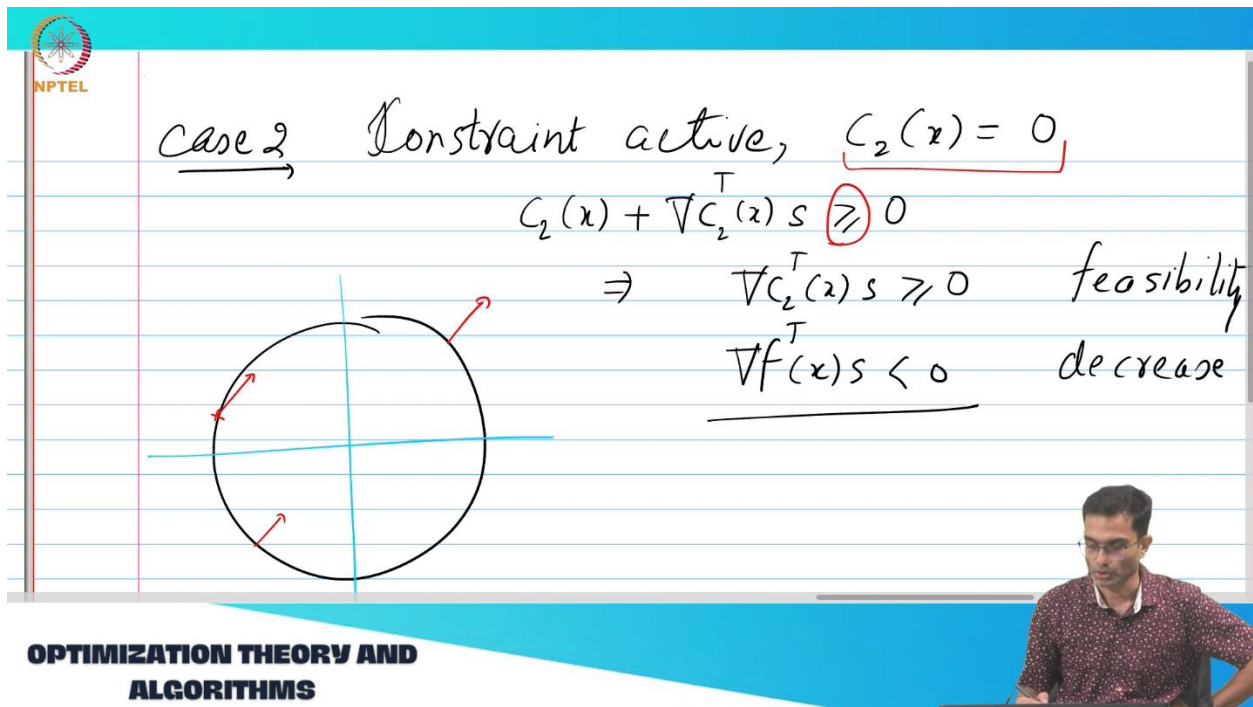 NPTEL
case 2 Constraint active, C₂(x) = 0
C₂(x) + ∇C₂ᵀ(x) s ⩾ 0
⇒ ∇C₂ᵀ(x) s ⩾ 0 feasibility
∇fᵀ(x) s < 0 decrease
OPTIMIZATION THEORY AND
ALGORITHMS